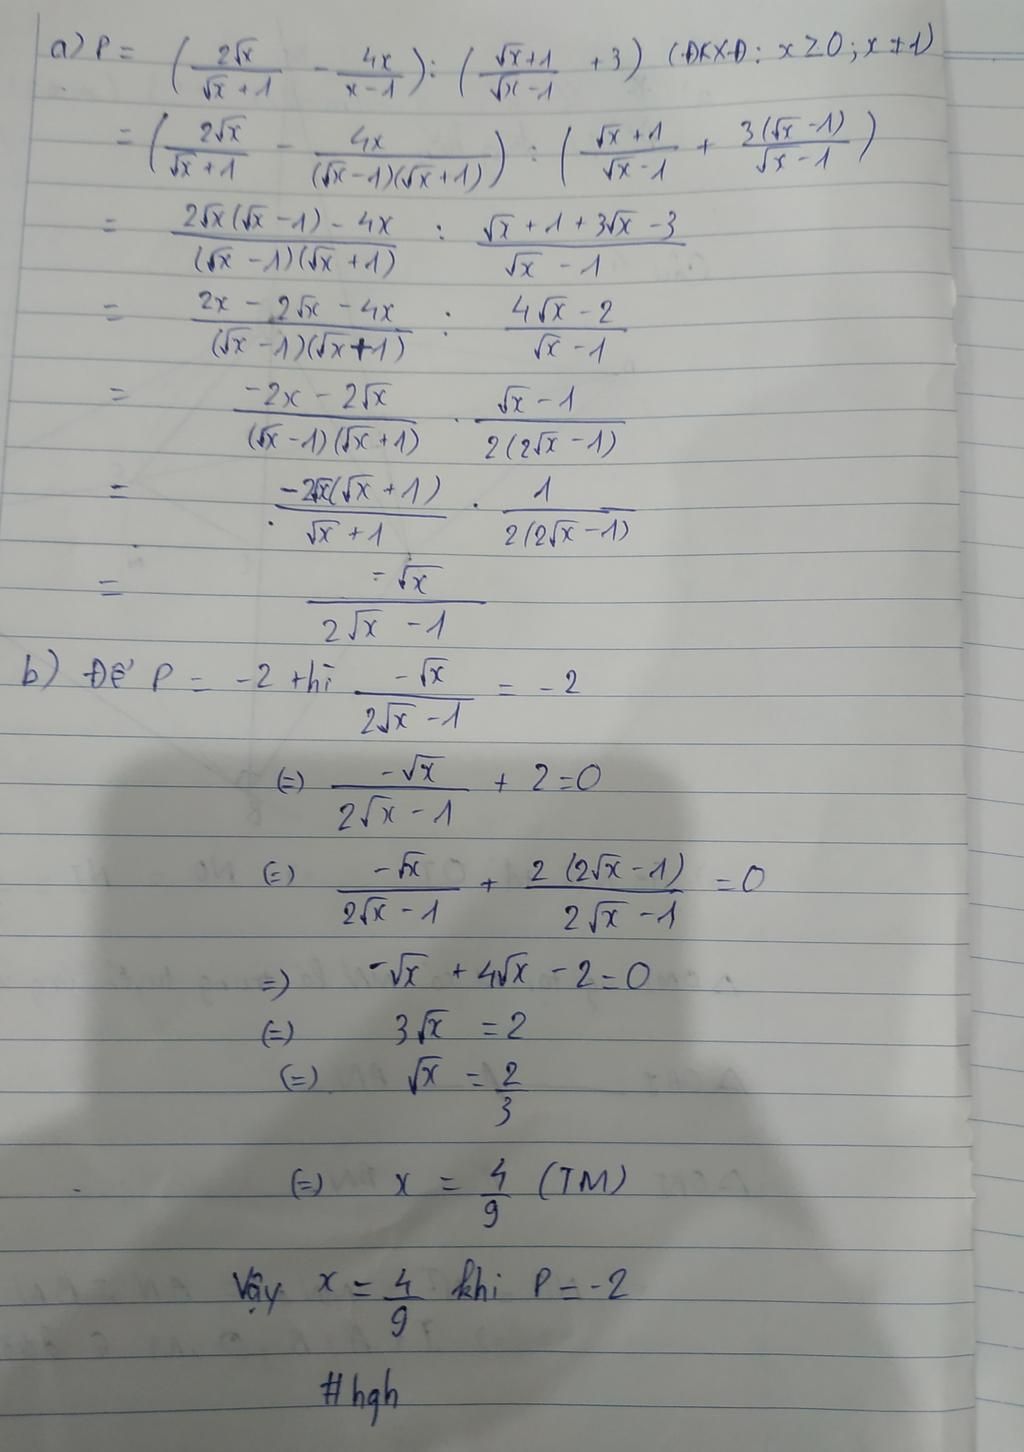 a) P = (2√x/(√x + 1) - 4x/(x - 1)) : ((√x + 1)/(√x - 1) + 3) (ĐKXĐ: x ≥ 0; x ≠ 1)
= (2√x/(√x + 1) - 4x/((√x - 1)(√x + 1))) : ((√x + 1)/(√x - 1) + 3(√x - 1)/(√x - 1))
= (2√x(√x - 1) - 4x)/((√x - 1)(√x + 1)) : (√x + 1 + 3√x - 3)/(√x - 1)
= (2x - 2√x - 4x)/((√x - 1)(√x + 1)) : (4√x - 2)/(√x - 1)
= (-2x - 2√x)/((√x - 1)(√x + 1)) . (√x - 1)/(2(2√x - 1))
= -2√x(√x + 1)/(√x + 1) . 1/(2(2√x - 1))
= -√x/(2√x - 1)
b) Để P = -2 thì -√x/(2√x - 1) = -2
(=) -√x/(2√x - 1) + 2 = 0
(=) -√x/(2√x - 1) + 2(2√x - 1)/(2√x - 1) = 0
=) -√x + 4√x - 2 = 0
(=) 3√x = 2
(=) √x = 2/3
(=) x = 4/9 (TM)
Vậy x = 4/9 khi P = -2
#hgh